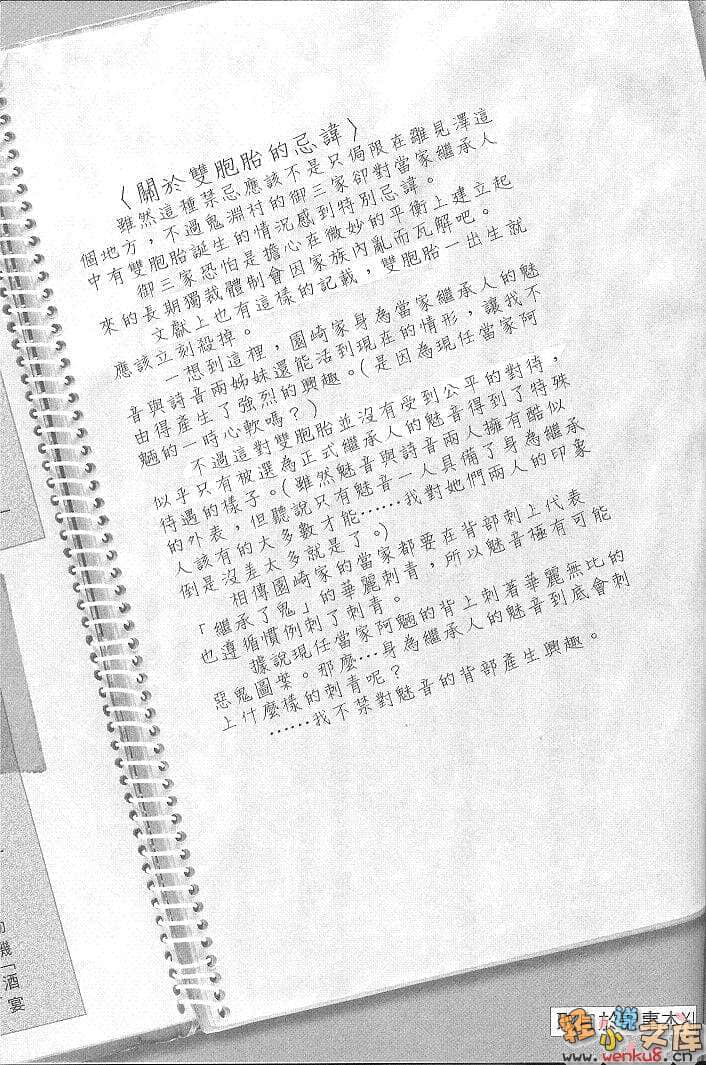 〈關於雙胞胎的忌諱〉
雖然這種禁忌應該不是只侷限在雛見澤這
個地方，不過鬼淵村的御三家卻對當家繼承人
中有雙胞胎誕生的情況感到特別忌諱。
御三家恐怕是擔心在微妙的平衡上建立起
來的長期獨裁體制會因家族內亂而瓦解吧。
文獻上也有這樣的記載，雙胞胎一出生就
應該立刻殺掉。
一想到這裡，園崎家身為當家繼承人的魅
音與詩音兩姊妹還能活到現在的情形，讓我不
由得產生了強烈的興趣。（是因為現任當家阿
魎的一時心軟嗎？）
不過這對雙胞胎並沒有受到公平的對待，
似乎只有被選為正式繼承人的魅音得到了特殊
待遇的樣子。（雖然魅音與詩音兩人擁有酷似
的外表，但聽說只有魅音一人具備了身為繼承
人該有的大多數才能……我對她們兩人的印象
倒是沒差太多就是了。）
相傳園崎家的當家都要在背部刺上代表
「繼承了鬼」的華麗刺青，所以魅音極有可能
也遵循慣例刺了刺青。
據說現任當家阿魎的背上刺著華麗無比的
惡鬼圖案。那麼…身為繼承人的魅音到底會刺
上什麼樣的刺青呢？
……我不禁對魅音的背部產生興趣。
機「酒宴
轻小说文库
www.wenku8.cn